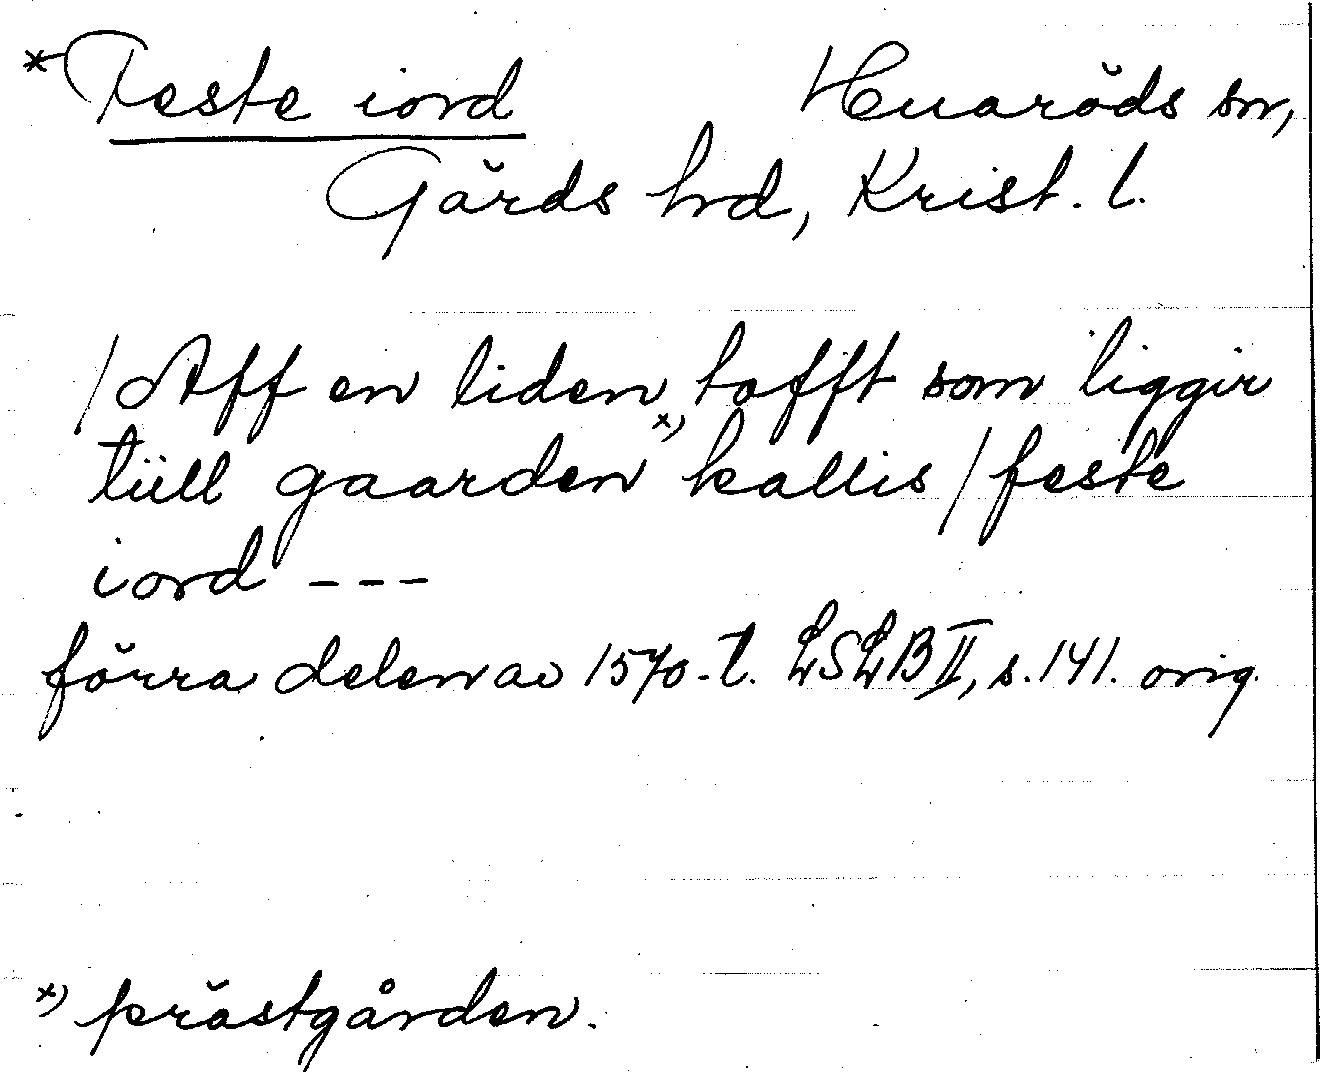 *Feste iord Huaröds sn,
Gärds hd, Krist. l.
/Aff en liden tofft som liggir
tiill gaarden x) kallis /feste
iord ---
förra delen av 1570-t. LSLB II, s. 141. orig.
x) prästgården.